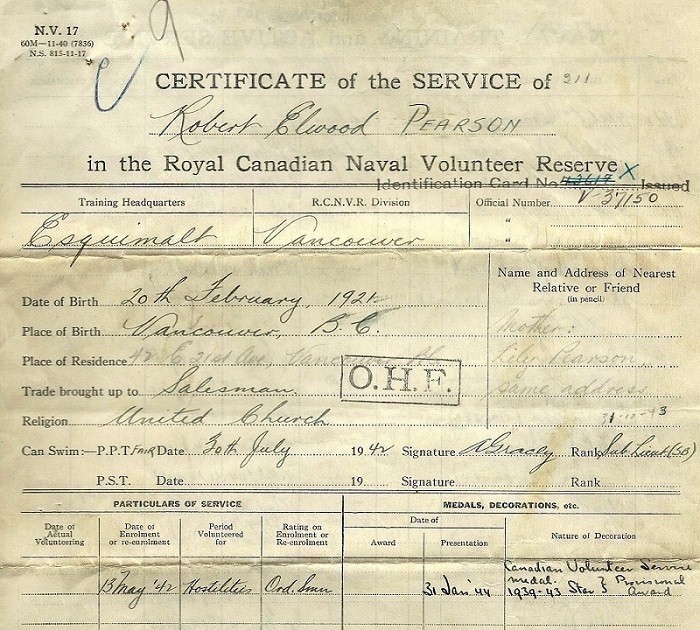 N.V. 17
60M—11-40 (7836)
N.S. 815-11-17
CERTIFICATE of the SERVICE of 211
Robert Elwood PEARSON
in the Royal Canadian Naval Volunteer Reserve X
Identification Card No. 43617 Issued
Training Headquarters R.C.N.V.R. Division Official Number V-37150
Esquimalt Vancouver "
"
Name and Address of Nearest
Relative or Friend
(in pencil)
Date of Birth 20th February, 1921
Place of Birth Vancouver, B.C. Mother:
Place of Residence 42 E. 21st Ave, Vancouver Lily Pearson,
Trade brought up to Salesman. O.H.F. same address
Religion United Church 31-12-43
Can Swim:—P.P.T. FAIR Date 30th July 1942 Signature Rank Sub Lieut (SB)
P.S.T. Date 19 Signature Rank
PARTICULARS OF SERVICE MEDALS, DECORATIONS, etc.
Date of Actual Volunteering Date of Enrolment or re-enrolment Period Volunteered for Rating on Enrolment or Re-enrolment Date of Award Presentation Nature of Decoration
13 May '42 Hostilities Ord. Smn 31 Jan '44 Canadian Volunteer Service
medal.
1939-43 Star } Provisional Award